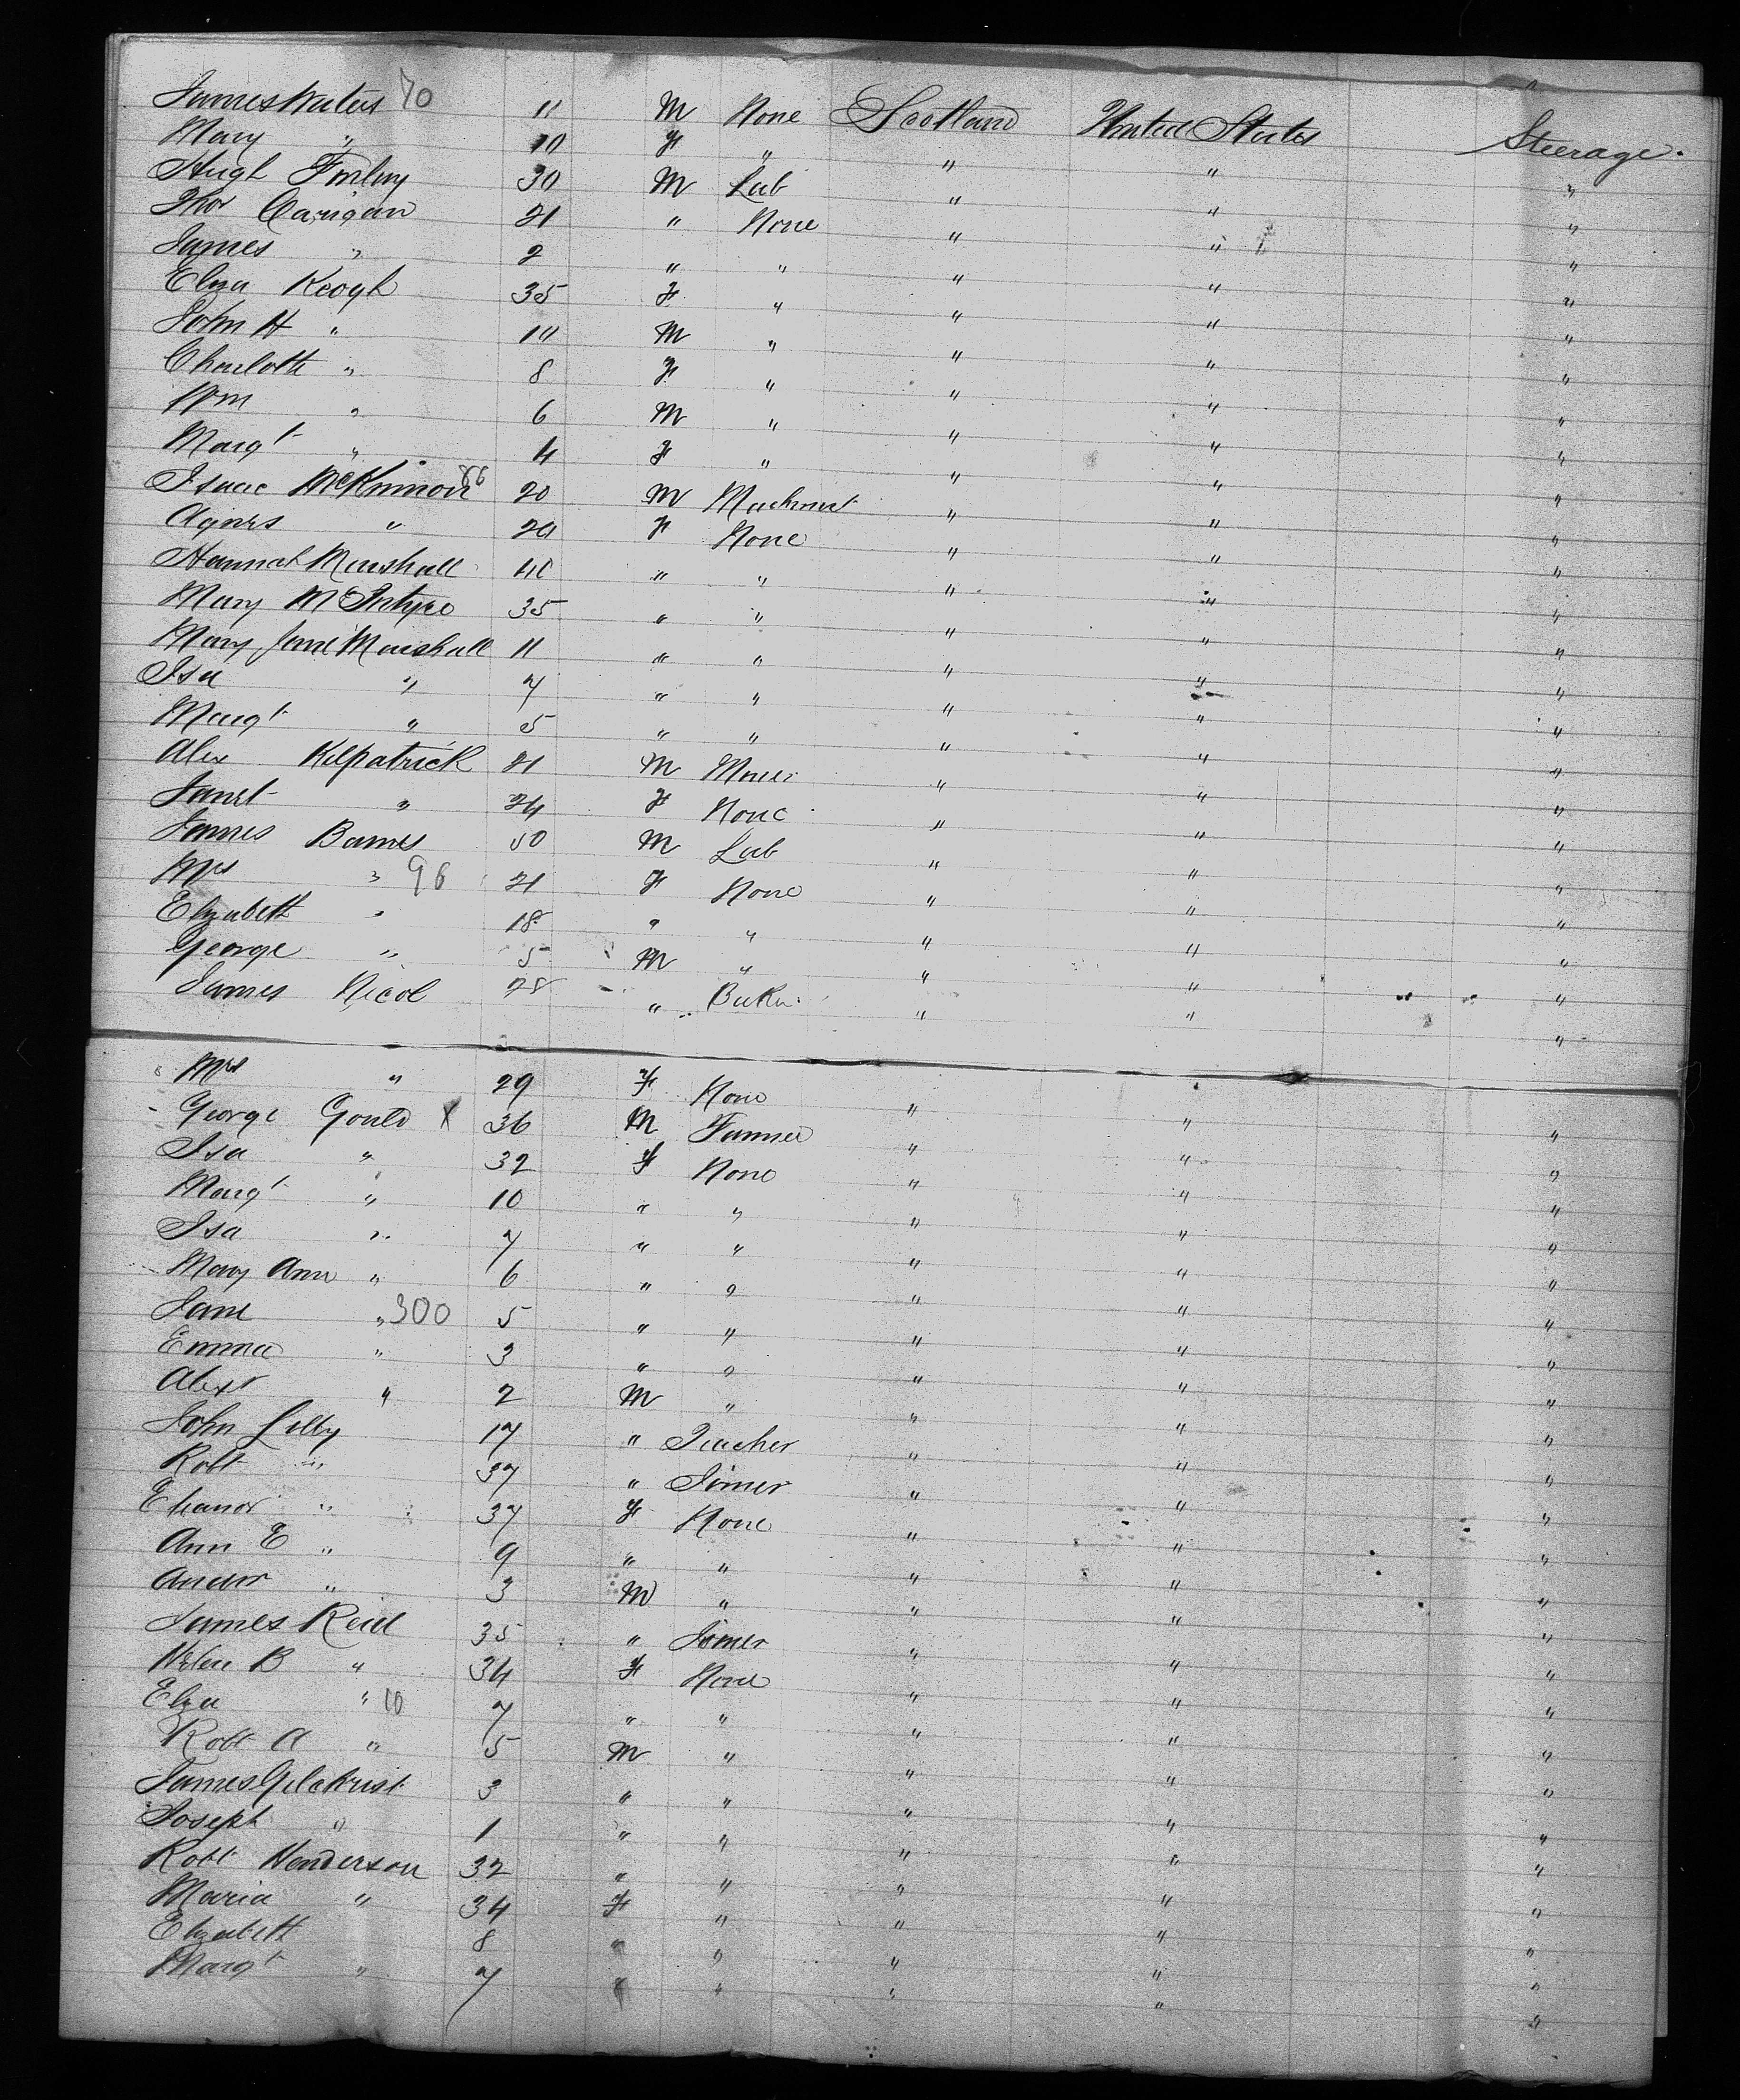 James Waters 70 11 M None Scotland United States Steerage.
Mary " 10 F " " " "
Hugh Finlay 30 M Lab " " "
Thos Carigan 21 " None " " "
James " 2 " " " " "
Eliza Keogh 35 F " " " "
John H " 10 M " " " "
Charlotte " 8 F " " " "
Wm " 6 M " " " "
Margt " 4 F " " " "
Isaac McKinnon 86 20 M Machinist " " "
Agnes " 20 F None " " "
Hannah Marshall 40 " " " " "
Mary McIntyre 35 " " " " "
Mary Jane Marshall 11 " " " " "
Isa " 7 " " " " "
Margt " 5 " " " " "
Alex Kilpatrick 21 M Miner " " "
Janet " 24 F None " " "
James Barnes 50 M Lab " " "
Mrs " 96 21 F None " " "
Elizabeth " 18 " " " " "
George " 5 M " " " "
James Nicol 28 " Baker " " "
Mrs " 29 F None " " "
George Gould X 36 M Farmer " " "
Isa " 32 F None " " "
Margt " 10 " " " " "
Isa " 7 " " " " "
Mary Ann " 6 " " " " "
Jane " 300 5 " " " " "
Emma " 3 " " " " "
Alexr " 2 M " " " "
John Jolly 17 " Teacher " " "
Robt " 37 " Joiner " " "
Eleanor " 37 F None " " "
Ann E " 9 " " " " "
Andw " 3 M " " " "
James Reid 35 " Joiner " " "
Helen B " 34 F None " " "
Eliza " 10 7 " " " " "
Robt A " 5 M " " " "
James Gilchrist 3 " " " " "
Joseph " 1 " " " " "
Robt Henderson 32 " " " " "
Maria " 34 F " " " "
Elizabeth 8 " " " " "
Margt " 7 " " " " "